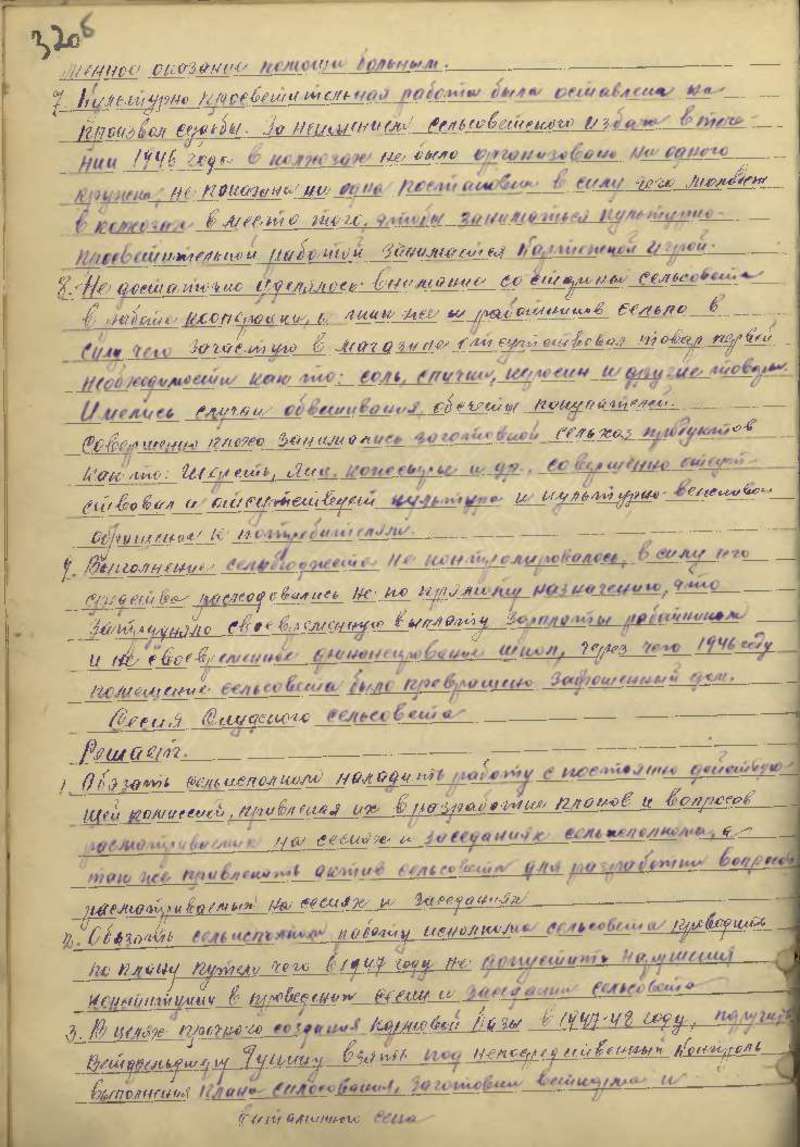 320б
менное оказание помощи больным.
7. Культурно просветительная работа была оставлена на
произвол судьбы. За неимением сельсоветского избача в тече-
нии 1946 года в колхозах не было организовано ни одного
кружка, не показана ни одна постановка в силу чего молодеж
в колхозах в место того, чтобы заниматься культурно-
просветительной работой занимается картежной игрой.
8. Не достаточно уделялось внимание со стороны сельсовета
в работе кооперации, а так же и работников сельпо в
силу чего зачастую в магазине отсутствовал товар первой
необходимости как то: соль, спички, керосин и другие товары.
Имелись случаи обвешивания, обсчеты покупателей.
Совершенно плохо занимались заготовкой сельхоз продуктов
как то: Шерсть, Яиц, кожсырье и др., совершенно отсут-
ствовал и отсутствует культура и культурно-вежливое
обращение к потребителям.
9. Выполнение сельбюджета не контролировалось, в силу чего
средства расходовались не по прямому назначению, что
затрудняло своевременную выплату зарплаты работникам
и не своевременное финансирование школ, через чего 1946 году
помещение сельсовета было превращено заброшенный дом.
Сесия Слудского сельсовета
Решает.
1. Обязать сельисполком наладить работу с постоянно действую-
щей комиссией, привлекая их в разработке планов и вопросов
расматриваемых на сесиях и заседаниях сельисполкома, а
так же привлекать актив сельсовета для разработки вопросов
расматриваемых на сесиях и заседаниях
2. Обязать сельисполком работу исполкома сельсовета проводить
по плану путем чего в 1947 году не допустить нарушения
конституции в проведении сесии и заседании сельсовета
3. В целях прочного создания кормовой базы в 1947-48 году, поручить
Ветфельдшеру взять под непосредственный контроль
выполнения плана силосования, заготовки веткорма и
витаминного сена